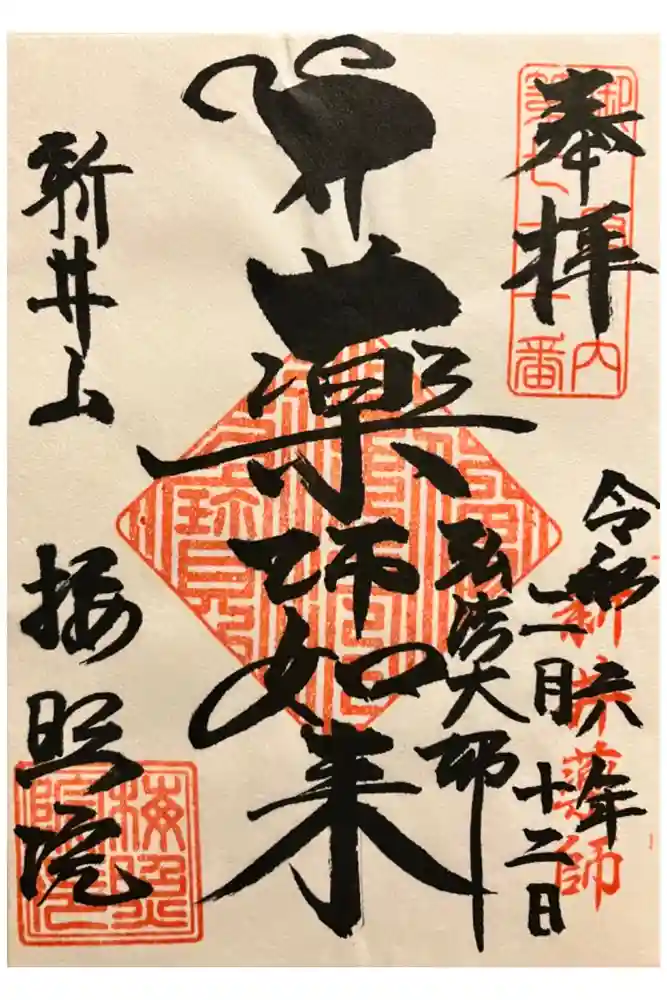 奉拝
御府内
第七十一番
令和六年
二月十二日
新井薬師
弘法大師
薬師如来
新井山
梅照院